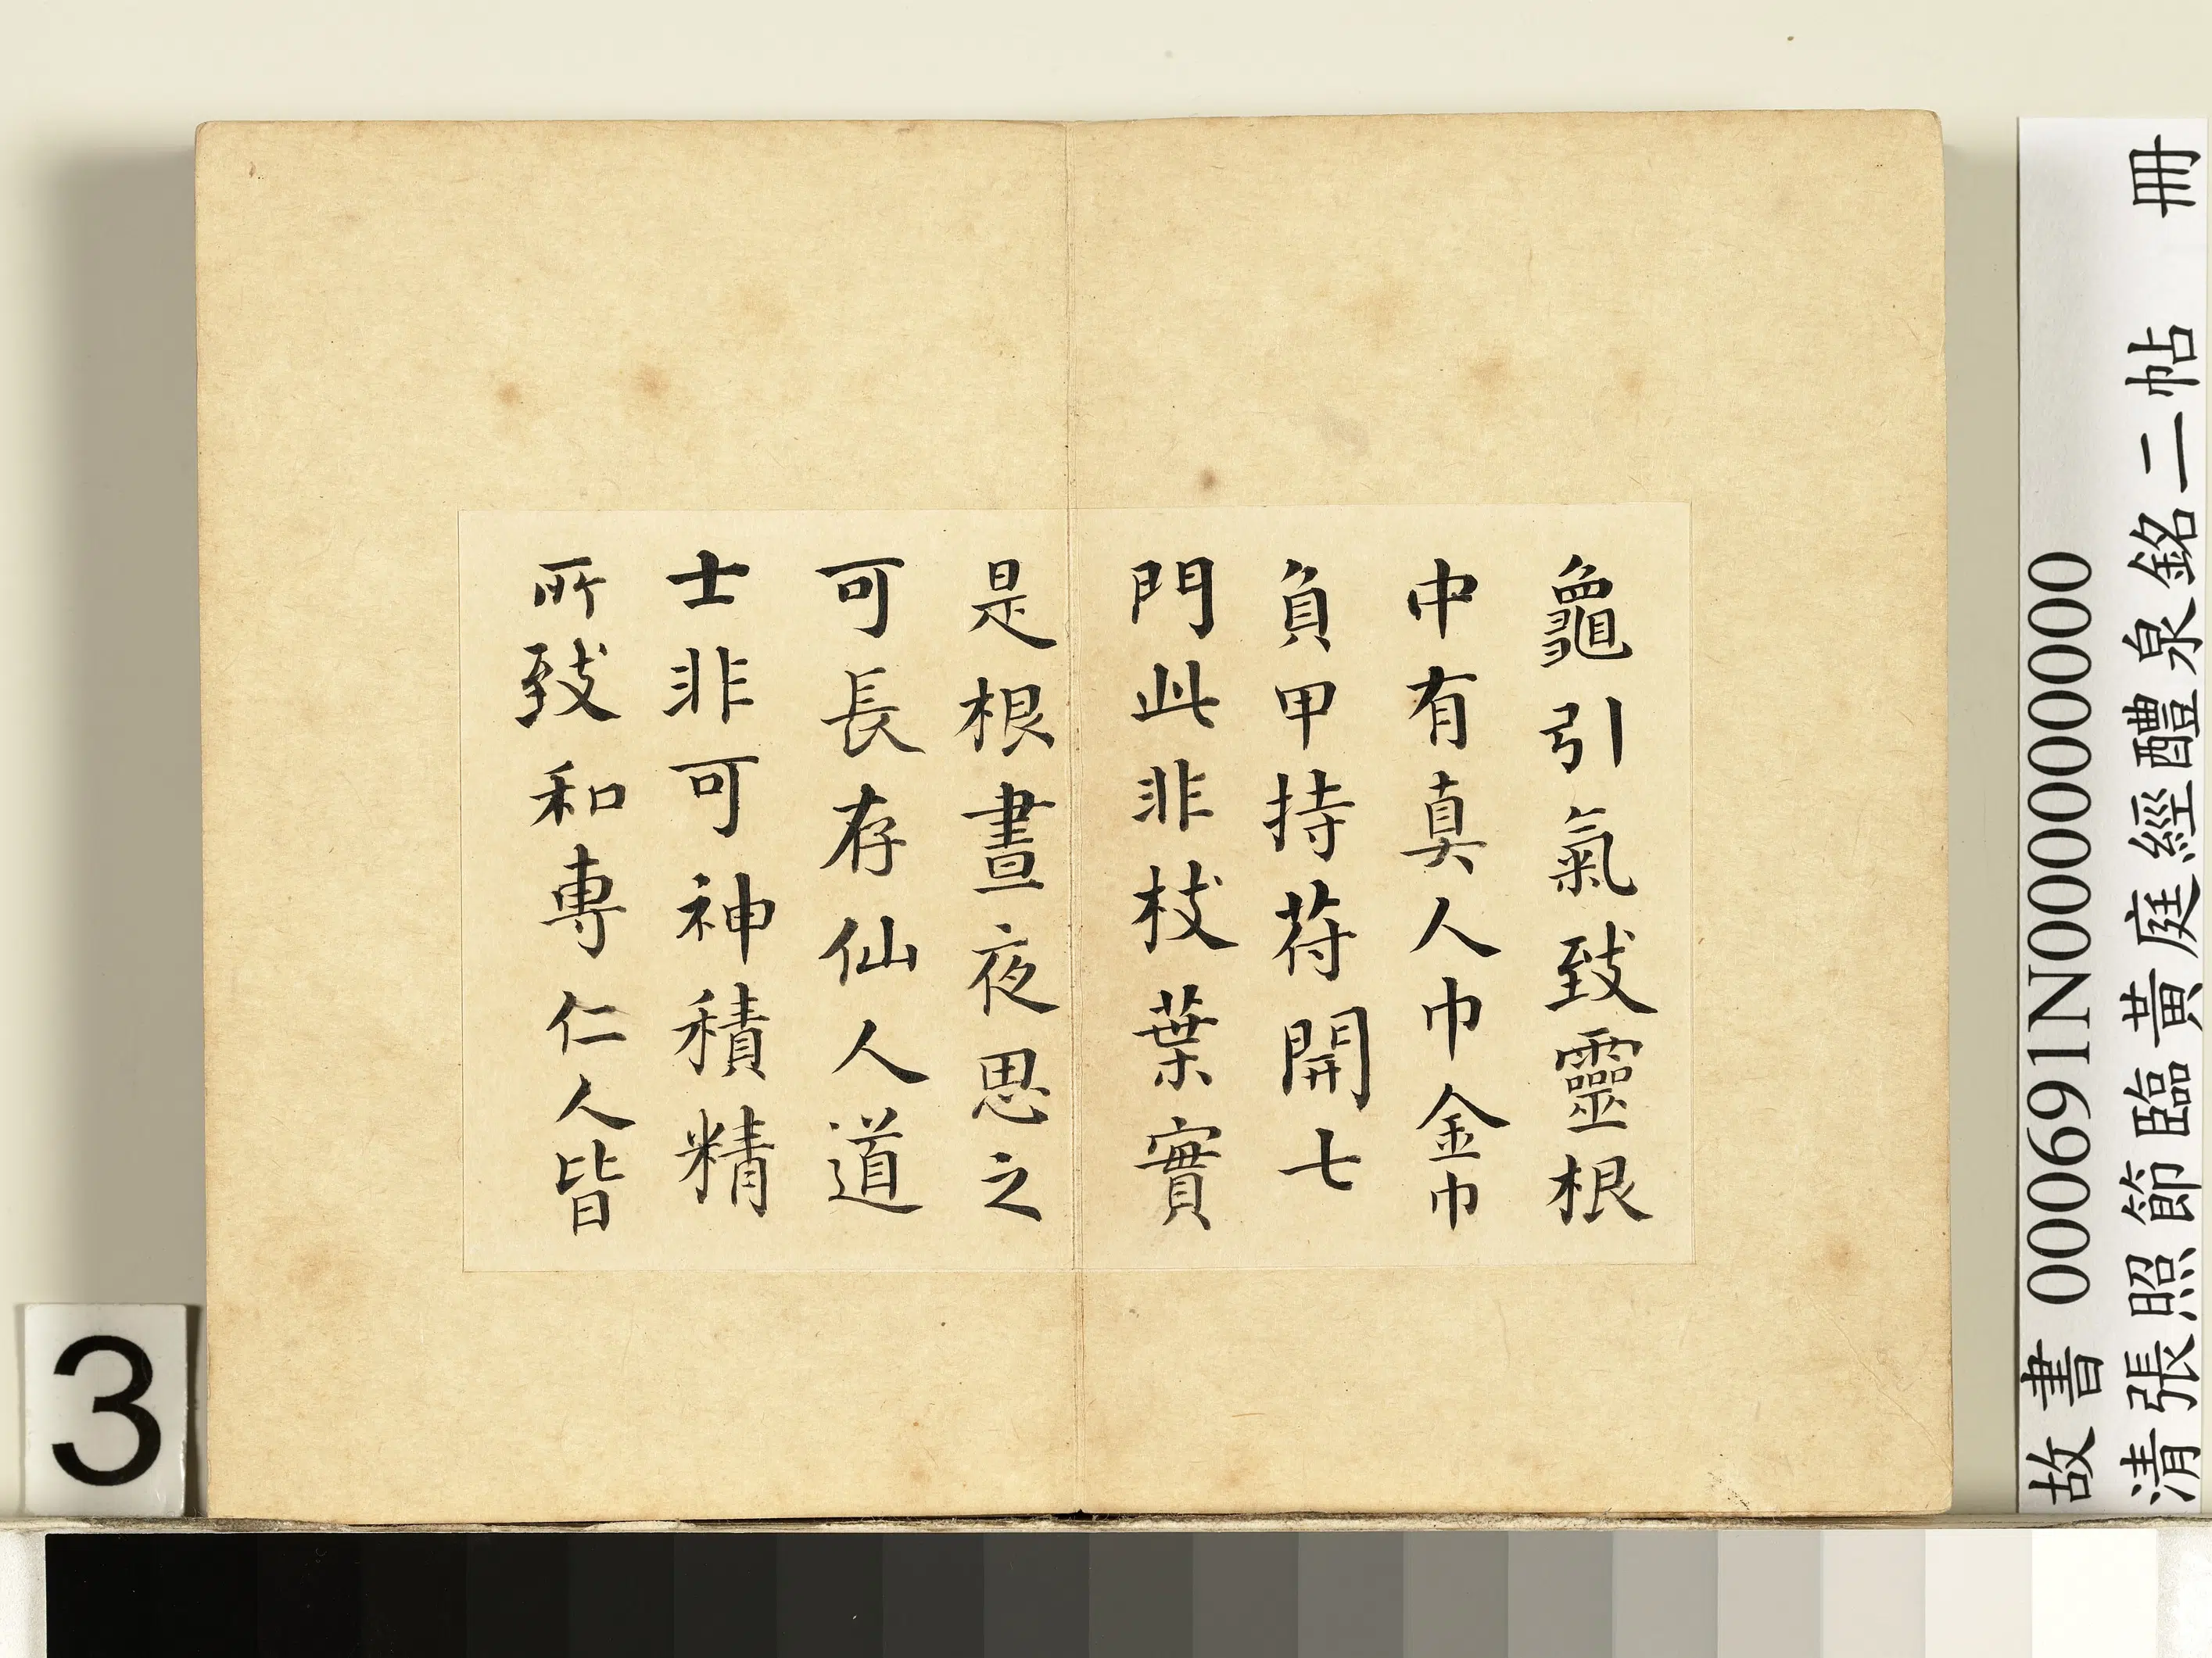 龜引氣致靈根
中有真人巾金巾
負甲持苻開七
門此非枝葉實
是根晝夜思之
可長存仙人道
士非可神積精
所致和專仁人皆
故書 000691N000000000
清張照節臨黃庭經醴泉銘二帖 冊
3